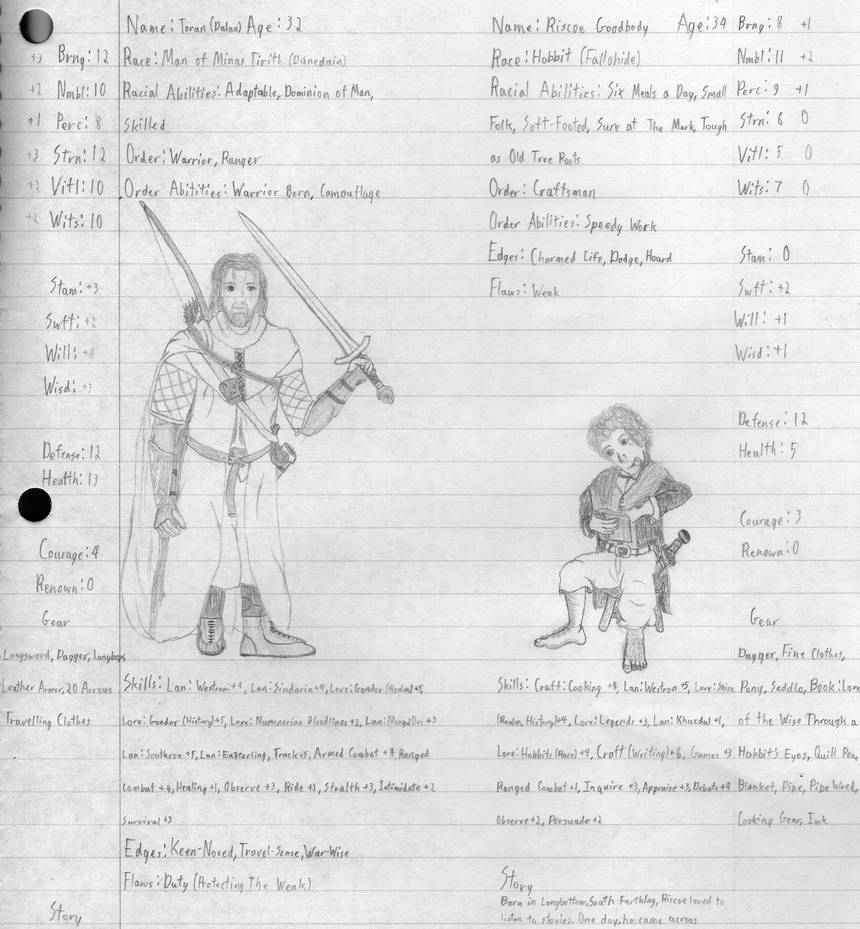 Name: Toran (Dulan) Age: 32
+3 Brng: 12
Race: Man of Minas Tirith (Dúnedain)
+2 Nmbl: 10
Racial Abilities: Adaptable, Dominion of Man,
+1 Perc: 8
Skilled
+3 Strn: 12
Order: Warrior, Ranger
+2 Vitl: 10
Order Abilities: Warrior Born, Camouflage
+2 Wits: 10
Stam: +3
Swft: +2
Will:
Wisd: +3
Defense: 12
Health: 13
Courage: 4
Renown: 0
Gear
Longsword, Dagger, Longbow,
Leather Armor, 20 Arrows
Travelling Clothes
Skills: Lan: Westron +4, Lan: Sindarin +4, Lore: Gondor (Realm) +5,
Lore: Gondor (History) +5, Lore: Numenorian Bloodlines +2, Lan: Orc +3
Lan: Southron +5, Lan: Easterling, Track +5, Armed Combat Ranged
Combat +4, Healing +1, Observe +3, Ride +2, Stealth +3, Intimidate +2
Survival +3
Edges: Keen-Nosed, Travel-Sense, War-Wise
Flaws: Duty (Protecting The Weak)
Story
Name: Riscoe Goodbody Age: 34
Race: Hobbit (Fallohide)
Racial Abilities: Six Meals a Day, Small
Folk, Soft-Footed, Sure at The Mark, Tough
as Old Tree Roots
Order: Craftsman
Order Abilities: Speedy Work
Edges: Charmed Life, Dodge, Hoard
Flaws: Weak
Brng: 8 +1
Nmbl: 11 +2
Perc: 9 +1
Strn: 6 0
Vitl: 5 0
Wits: 7 0
Stam: 0
Swft: +2
Will: +1
Wisd: +1
Defense: 12
Health: 5
Courage: 3
Renown: 0
Gear
Dagger, Fine Clothes,
Pony, Saddle, Book: Lore
of the Wise Through a
Hobbit's Eyes, Quill Pen,
Blanket, Pipe, Pipe Weed,
Cooking Gear, Ink
Skills: Craft: Cooking Lan: Westron +5, Lore: Shire
(Realm, History) +4, Lore: Legends +3, Lan: Khuzdul +1,
Lore: Hobbits (Race) +4, Craft (Writing) +6, Games +3
Ranged Combat +1, Inquire +3, Appraise +3, Debate +4
Observe +2, Persuade +2
Story
Born in Longbottom, South Farthing, Riscoe loved to
listen to stories. One day, he came across